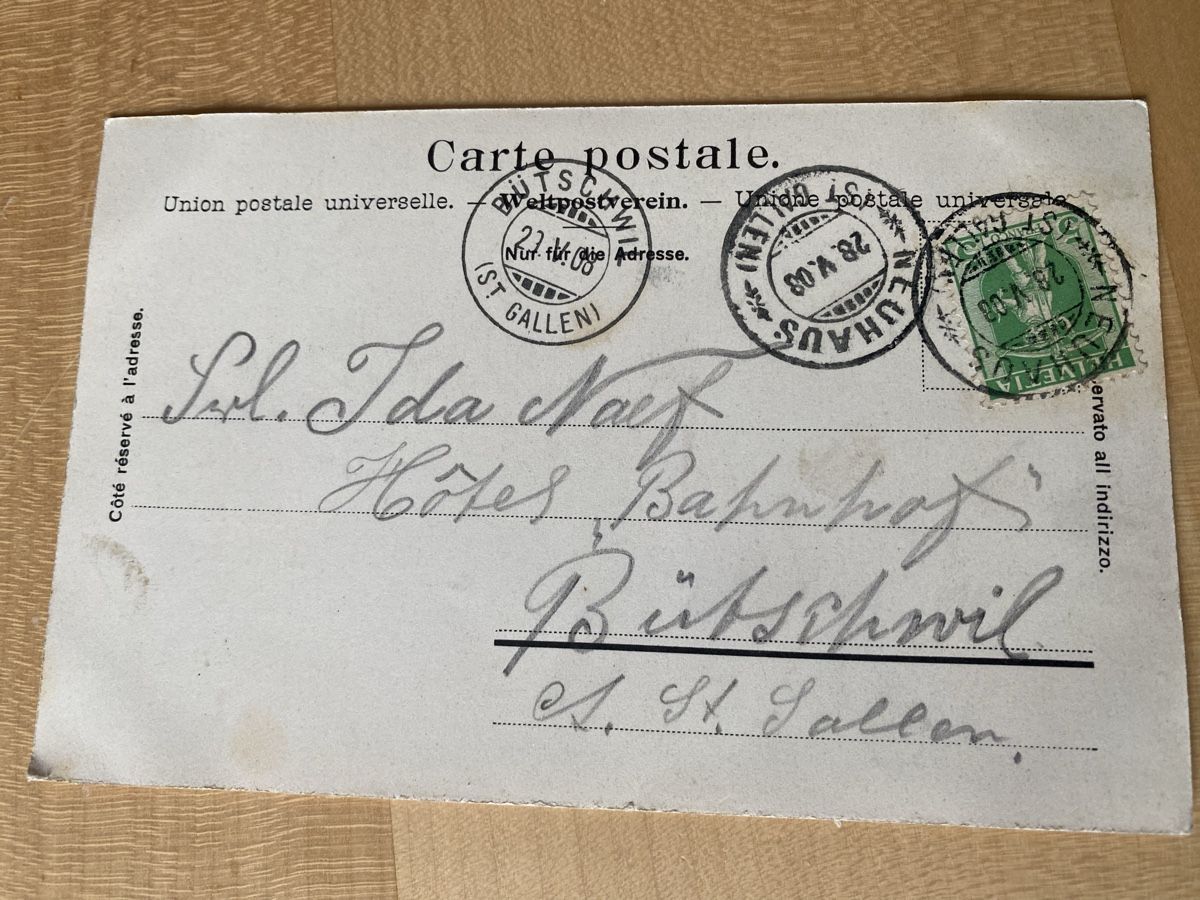 Carte postale.
Union postale universelle. — Weltpostverein. — Unione postale universale
Nur für die Adresse.
BÜTSCHWIL
(ST GALLEN)
NEUHAUS
(ST GALLEN)
28.V.08
NEUHAUS
28.V.08
HELVETIA
Côté réservé à l'adresse.
ervato all indirizzo.
Frl. Ida Naef
Hôtel „Bahnhof"
Bütschwil
St. Gallen.